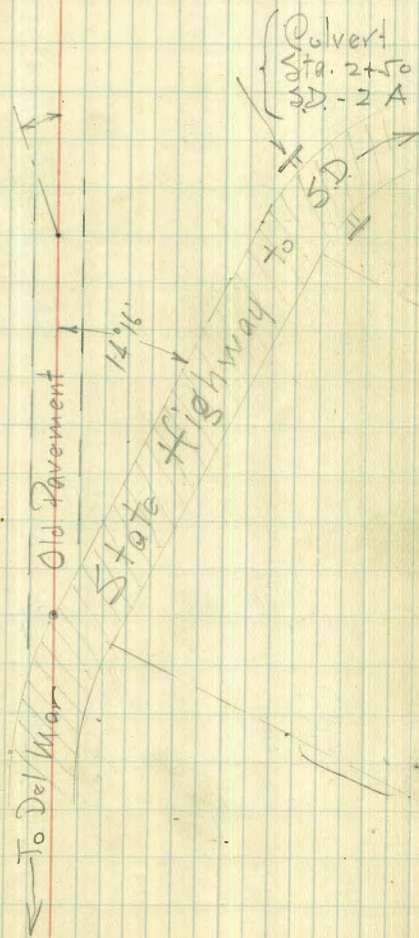 Culvert
Sta. 2+50
S.D. - 2 A
State Highway to S.D.
14°16'
Old Pavement
To Del Mar